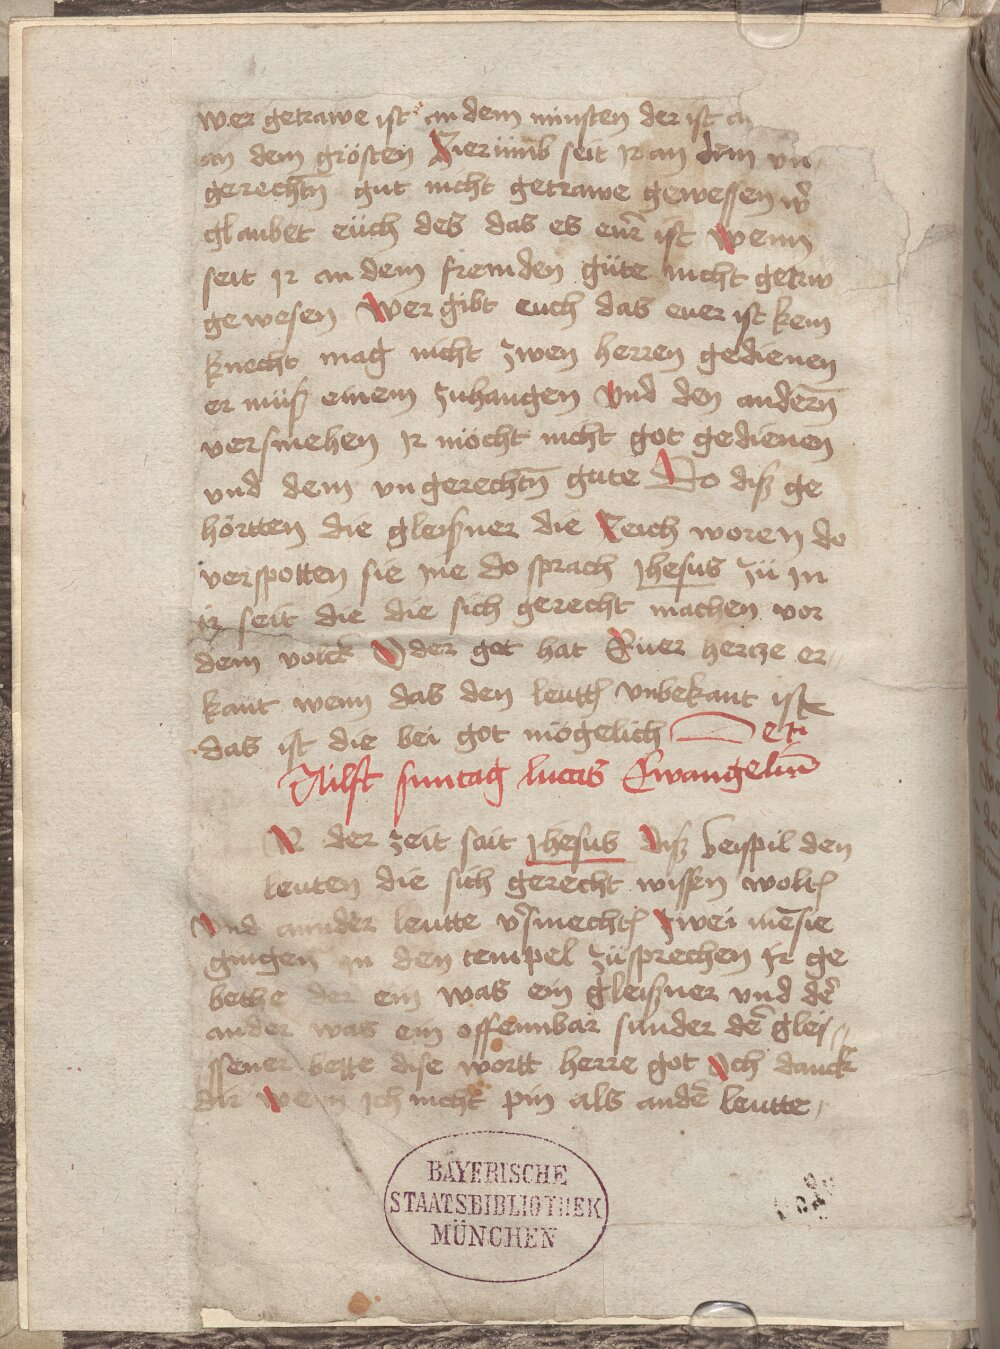 wer getrawe ist an dem minsten der ist a
an dem grösten Hierümb seit ir an dem vn
gerechtñ gut nicht getrawe gewessen w̉
glaubet eüch des das es eur̃ ist Wenn
seit Ir an dem fremden güte nicht getrw
gewesen Wer gibt euch das euer ist kein
knecht mag nicht zwen herren gedienen
er müsß einem zuhangen Vnd den anderñ
versmehen Ir möcht nicht got gedienen
vnd dem vngerechtñ gute Do disß ge
hörtten die gleisßner die Reich woren do
verspotten sie Ine do sprach Jhesus zü In
ir seit die die sich gerecht machen vor
dem volck Oder got hat Euer hercze er//
kant wenn das den leuttñ vnbekant ist
das ist die bei got mögelich etc
Ailft suntag lucas Ewangeliũ
N der zeit sait Jhesus disß beispil den
leuten die sich gerecht wissen woltñ
Vnd annder leutte v̉smechtñ Zwei mẽsie
gingen in den tempel züsprechen Ir ge
bethe der ein was ein gleisßner vnd der̃
ander was ein offennbar sunder der̃ glei//
ssener bette dise wortt herre got Ich danck
dir Wenn ich nicht pin als ander̃ leutte
BAYERISCHE
STAATSBIBLIOTHEK
MÜNCHEN